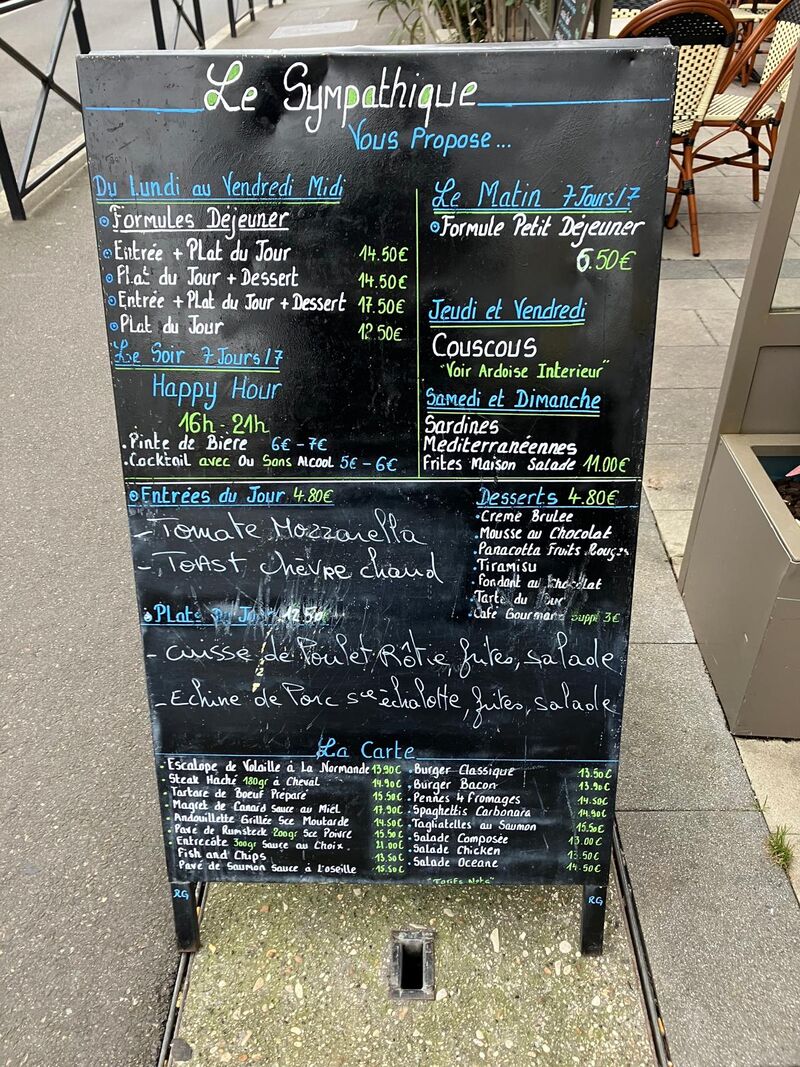 Le Sympathique
Vous Propose...
Du Lundi au Vendredi Midi
Formules Déjeuner
Entrée + Plat du Jour 14.50€
Plat du Jour + Dessert 14.50€
Entrée + Plat du Jour + Dessert 17.50€
Plat du Jour 12.50€
Le Soir 7Jours/7
Happy Hour
16h - 21h
Pinte de Bière 6€ - 7€
Cocktail avec Ou Sans Alcool 5€ - 6€
Le Matin 7Jours/7
Formule Petit Déjeuner
6.50€
Jeudi et Vendredi
Couscous
"Voir Ardoise Interieur"
Samedi et Dimanche
Sardines
Mediterranéennes
Frites Maison Salade 11.00€
Entrées du Jour 4.80€
- Tomate Mozzarella
- Toast chèvre chaud
Desserts 4.80€
Creme Brulee
Mousse au Chocolat
Panacotta Fruits Rouges
Tiramisu
Fondant au Chocolat
Tarte du Jour
Café Gourmand Suppl 3€
Plats du Jour 12.50€
- cuisse de Poulet, Rôtie, frites, salade
- Echine de Porc sce échalotte, frites, salade
La Carte
Escalope de Volaille à La Normande 13.90€
Steak Haché 180gr à Cheval 14.90€
Tartare de Boeuf Préparé 15.50€
Magret de Canard Sauce au Miel 17.90€
Andouillette Grillée Sce Moutarde 14.50€
Pavé de Rumsteck 200gr Sce Poivre 15.50€
Entrecôte 300gr Sauce au Choix. 21.00€
Fish and Chips 13.50€
Pavé de Saumon Sauce à L'oseille 15.50€
Burger Classique 13.50€
Burger Bacon 13.90€
Pennes 4 Fromages 14.50€
Spaghettis Carbonara 14.90€
Tagliatelles au Saumon 15.50€
Salade Composée 13.00€
Salade Chicken 13.50€
Salade Oceane 14.50€
"Tarifs Nets"
RG
RG